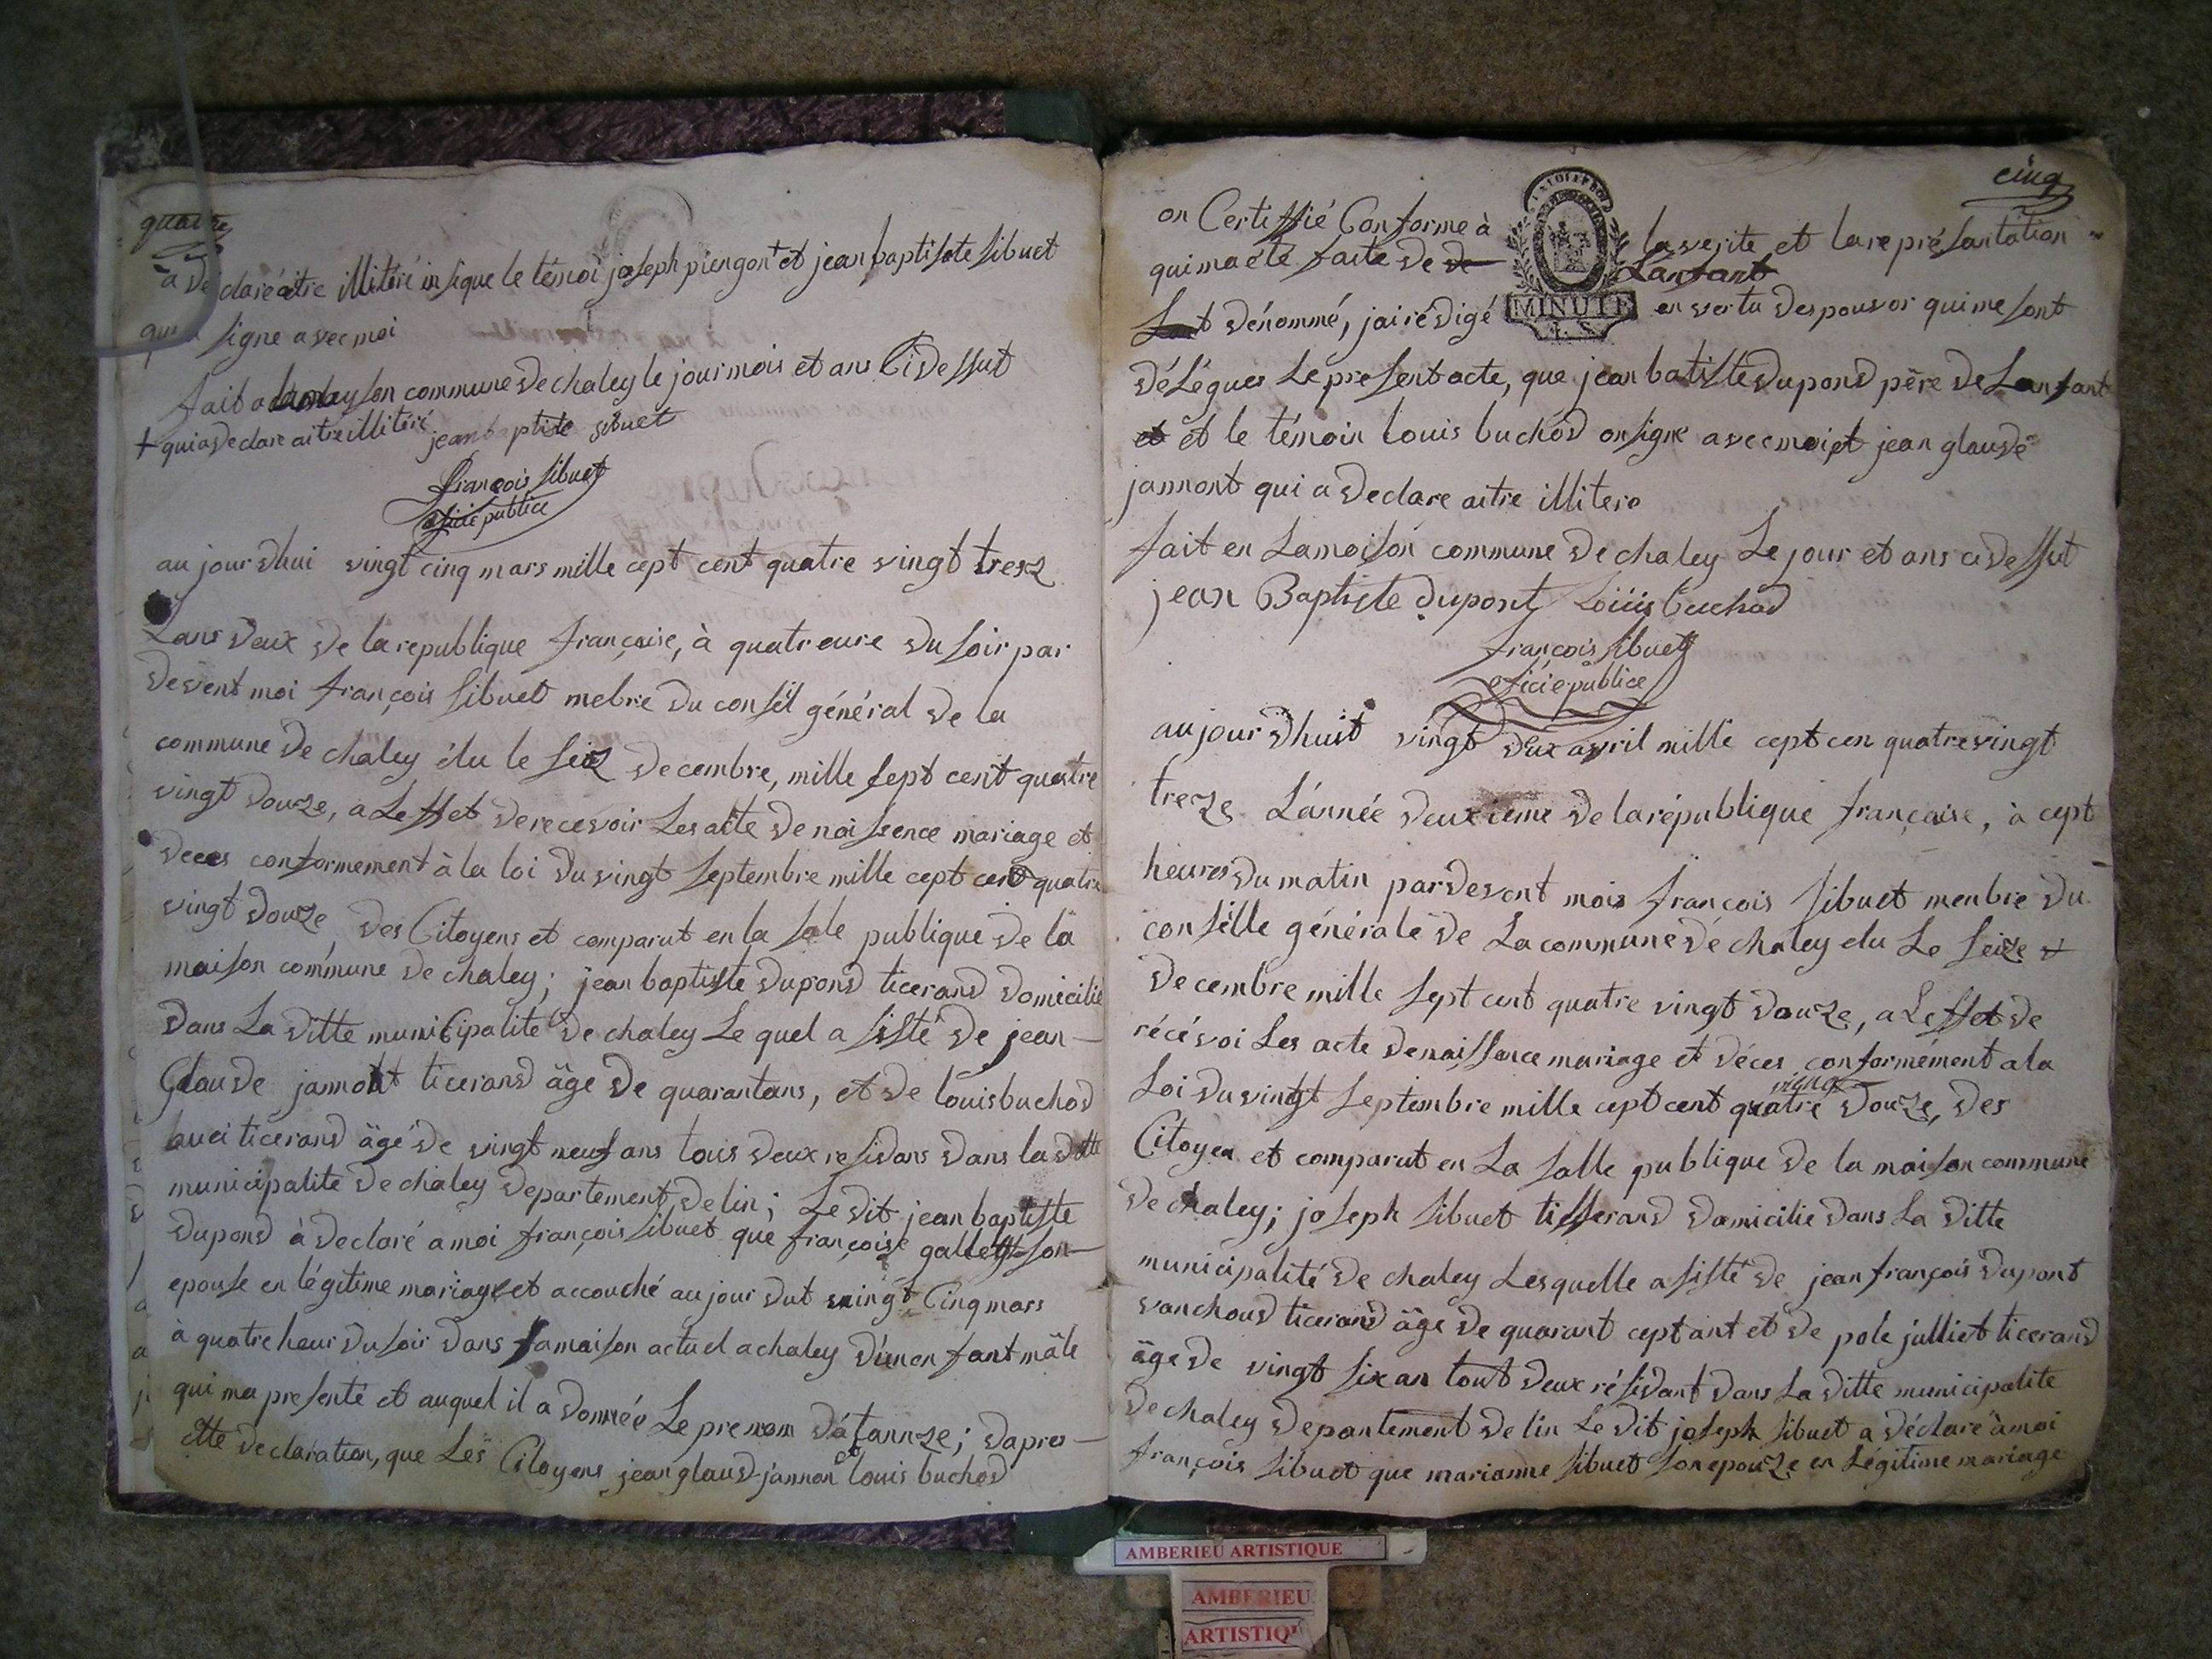 quatre
a declaré aitre illitéré insi que le témoi joseph piengon + et jean baptisete sibuet
qui a signe avec moi
fait a la maison commune de chaley le jour mois et ans Ci dessut
+ qui a declare aitre illitéré
jean baptiste sibuet
françois sibuet
oficié publice
au jour dhui vingt cinq mars mille cept cent quatre vingt tresz
Lans deux de la republique française, à quatr eure du soir par
devent moi françois sibuet mebre du consél général de la
commune de chaley élu le seiz decembre, mille sept cent quatre
vingt douze, a Leffet de recevoir Les acte de naissence mariage et
deces conformement à la loi du vingt septembre mille cept cent quatre
vingt douze des Citoyens et comparut en la sale publique de la
maison commune de chaley; jean baptiste dupond ticerand domicilié
dans La ditte municipalité de chaley Le quel a sisté de jean -
Glaude jannont ticerand âge de quarantans, et de louis buchod
auci ticerand âgé de vingt neuf ans tous deux residans dans la ditte
municipalite de chaley departement de lin; Le dit jean baptiste
dupond à declaré a moi françois sibuet que françoise gallet son -
epouse en légitime mariage et accouché au jour dut vingt Cinq mars
à quatre heur du soir dans sa maison actuel a chaley d'un enfant mâle
qui ma presenté et auquel il a donnée Le prenom d'atannze; dapres -
cette declaration, que Les Citoyens jean glaud jannon et louis buchod
cinq
on Certiffié Conforme à la verite et la représantation
qui ma été faite de de Lanfant
MINUTE
Lant dénommé, jai rédigé en vertu des pouvor qui me sont
délégues Le present acte, que jean batiste dupond père de Lanfant
et et le témoin louis buchod on signe avec moi et jean glaude
jannont qui a declare aitre illitero
fait en La moison commune de chaley Le jour et ans ci dessut
jean Baptiste dupont Loüis buchod
françois sibuet
oficié publice
au jour dhuit vingt deux avril mille cept cen quatre vingt
treze L'année deuxieme de la république française, à cept
heures du matin par devent mois françois sibuet menbre du
consélle générale de La commune de chaley elu Le seize
decembre mille sept cent quatre vingt douze, a Leffet de
récévoi Les acte de naissance mariage et déces conformément a la
Loi du vingt septembre mille cept cent quatre vingt douze, des
Citoyen et comparut en La salle publique de la maison commune
de chaley; joseph sibuet tisserand domicilie dans La ditte
municipalité de chaley Lesquelle a sisté de jean françois dupont
vanchoud ticerand âge de quarant cept ant et de pole julliet ticerand
âge de vingt six an tout deux résidant dans La ditte municipalite
de chaley departement de lin Le dit joseph sibuet a déclaré à moi
françois sibuet que marianne sibuet son epouze en Légitime mariage
AMBERIEU ARTISTIQUE
AMBERIEU
ARTISTIQ